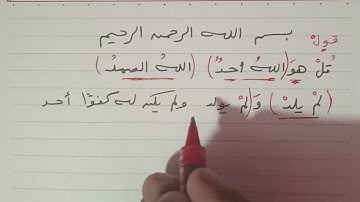 بسم الله الرحمن الرحيم
قول
قُلْ هوَ (اللهُ أحدٌ) (اللهُ الصمدُ)
(لمْ يلدْ) وَ(لمْ يولد ولم يكن له كفوًا أحد